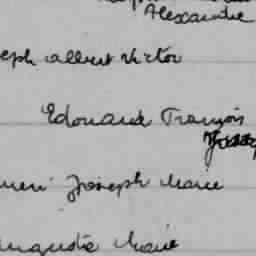 Alexandre
eph albert Victor
Edouard François
enri Joseph Marie
auguste Marie